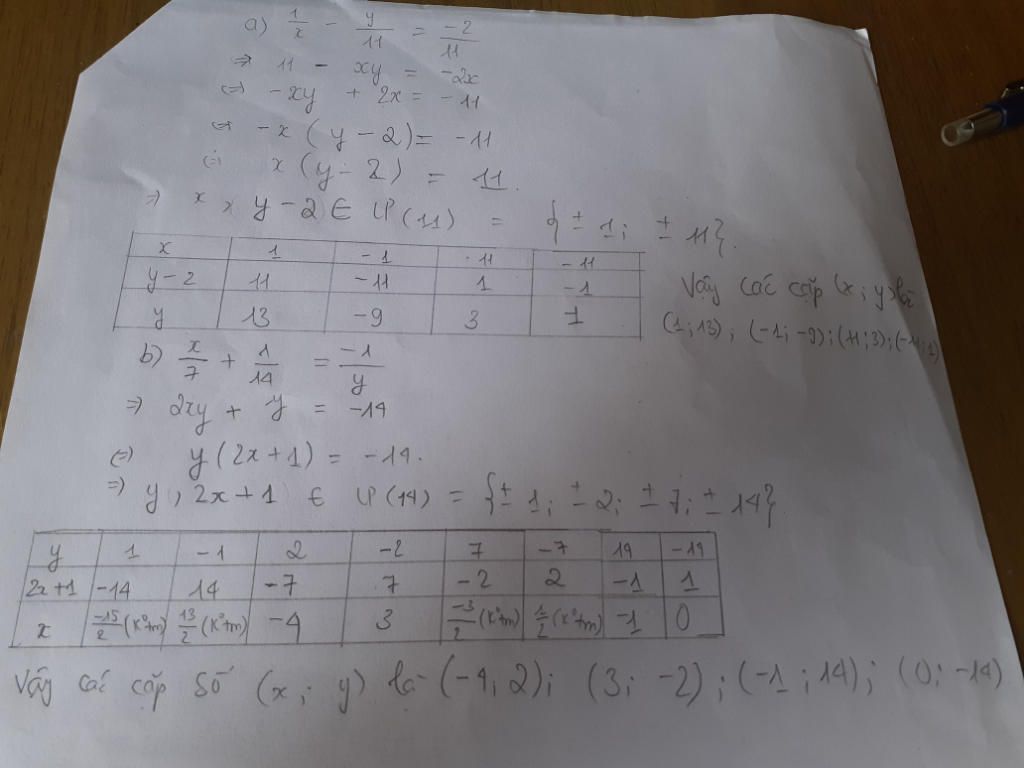 a) 1/x - y/11 = -2/11
=> 11 - xy = -2x
<=> -xy + 2x = -11
<=> -x(y-2) = -11
<=> x(y-2) = 11.
=> x, y-2 ∈ Ư(11) = {±1; ±11}.
x 1 -1 11 -11
y-2 11 -11 1 -1
y 13 -9 3 1
Vậy các cặp (x; y) là
(1;13); (-1;-9); (11;3); (-11;1)
b) x/7 + 1/14 = -1/y
=> 2xy + y = -14
<=> y(2x+1) = -14.
=> y, 2x+1 ∈ Ư(14) = {±1; ±2; ±7; ±14}
y 1 -1 2 -2 7 -7 14 -14
2x+1 -14 14 -7 7 -2 2 -1 1
x -15/2 (K°tm) 13/2 (K°tm) -4 3 -3/2 (K°tm) 1/2 (K°tm) -1 0
Vậy các cặp số (x; y) là (-4; 2); (3; -2); (-1; 14); (0; -14)